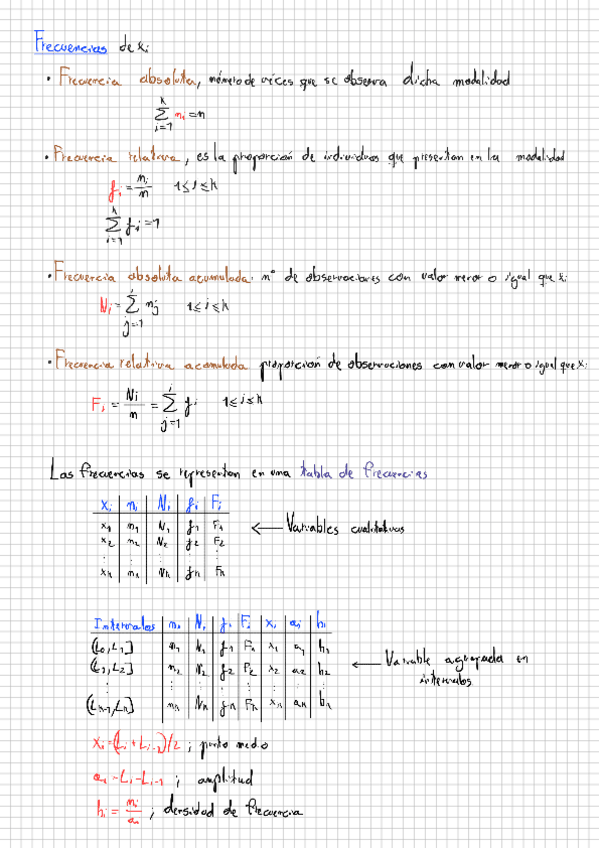 Frecuencias de xi
• Frecuencia absoluta, número de veces que se observa dicha modalidad
k
∑ ni = n
i=1
• Frecuencia relativa, es la proporción de individuos que presentan en la modalidad
fi = ni/n 1≤i≤k
k
∑ fi = 1
i=1
• Frecuencia absoluta acumulada: nº de observaciones con valor menor o igual que xi
i
Ni = ∑ nj 1≤i≤k
j=1
• Frecuencia relativa acumulada proporción de observaciones con valor menor o igual que xi
i
Fi = Ni/n = ∑ fi 1≤i≤k
j=1
Las frecuencias se representan en una tabla de frecuencias
xi ni Ni fi Fi
x1 n1 N1 f1 F1
x2 n2 N2 f2 F2
⋮ ⋮ ⋮ ⋮ ⋮
xk nk Nk fk Fk
← Variables cualitativas
Intervalos ni Ni fi Fi xi ai hi
(L0,L1] n1 N1 f1 F1 x1 a1 h1
(L1,L2] n2 N2 f2 F2 x2 a2 h2
⋮ ⋮ ⋮ ⋮ ⋮ ⋮ ⋮ ⋮
(Lk-1,Lk] nk Nk fk Fk xk ak hk
← Variable agrupada en
intervalos
xi = (Li + Li-1)/2 ; punto medio
ai = Li - Li-1 ; amplitud
hi = ni/ai ; densidad de frecuencia